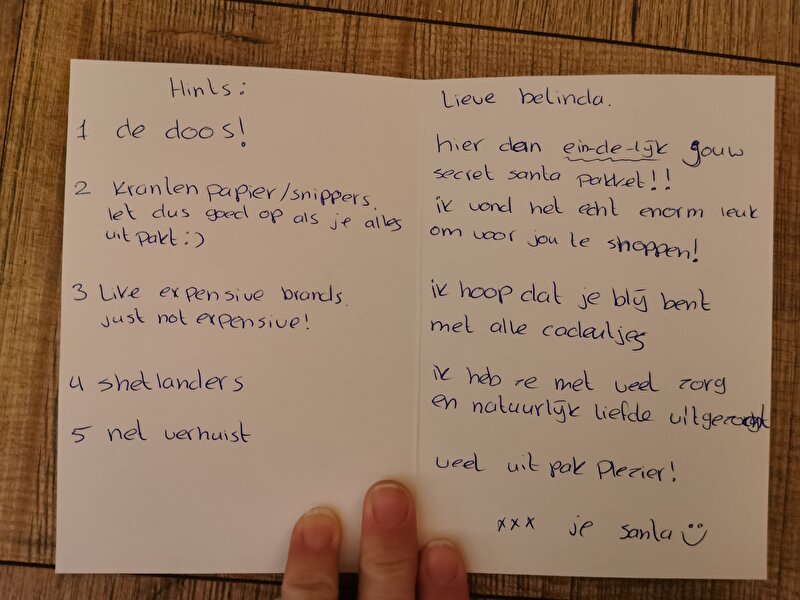 Hints:
1 de doos!
2 Kranten papier/snippers.
let dus goed op als je alles
uit pakt :)
3 Like expensive brands.
just not expensive!
4 shetlanders
5 net verhuist
Lieve belinda.
hier dan ein-de-lijk jouw
secret santa pakket!!
ik vond het echt enorm leuk
om voor jou te shoppen!
ik hoop dat je blij bent
met alle cadeutjes
ik heb ze met veel zorg
en natuurlijk liefde uitgezocht
veel uit pak plezier!
xxx je santa